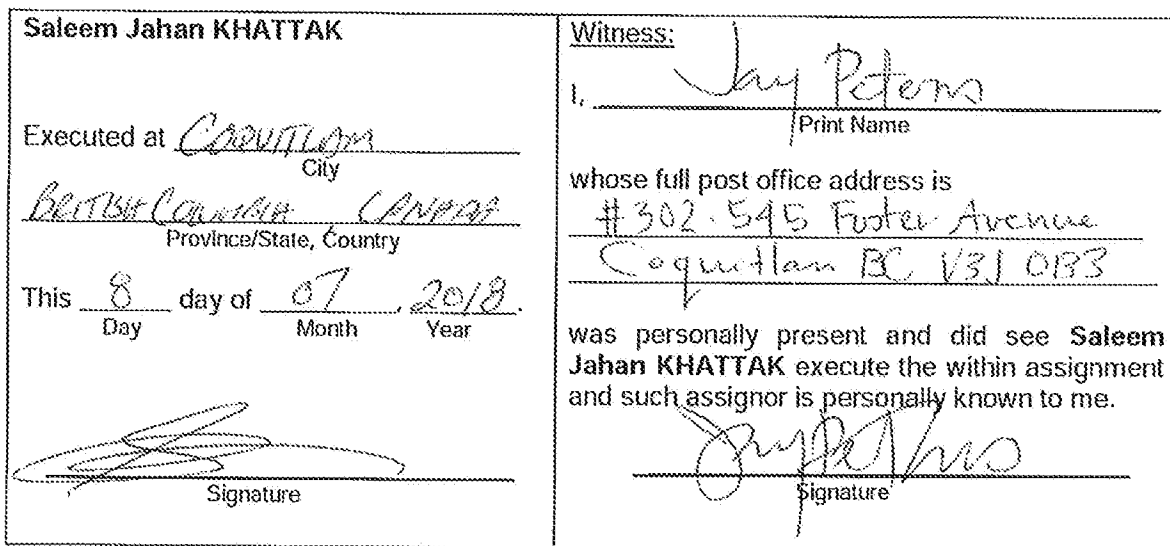 Saleem Jahan KHATTAK
Executed at COQUITLAM
City
BRITISH COLUMBIA CANADA
Province/State, Country
This 8 day of 07, 2018.
Day Month Year
Signature
Witness:
I, Jay Peters
Print Name
whose full post office address is
#302-545 Foster Avenue
Coquitlam BC V3J 0B3
was personally present and did see Saleem
Jahan KHATTAK execute the within assignment
and such assignor is personally known to me.
Jay Peters
Signature